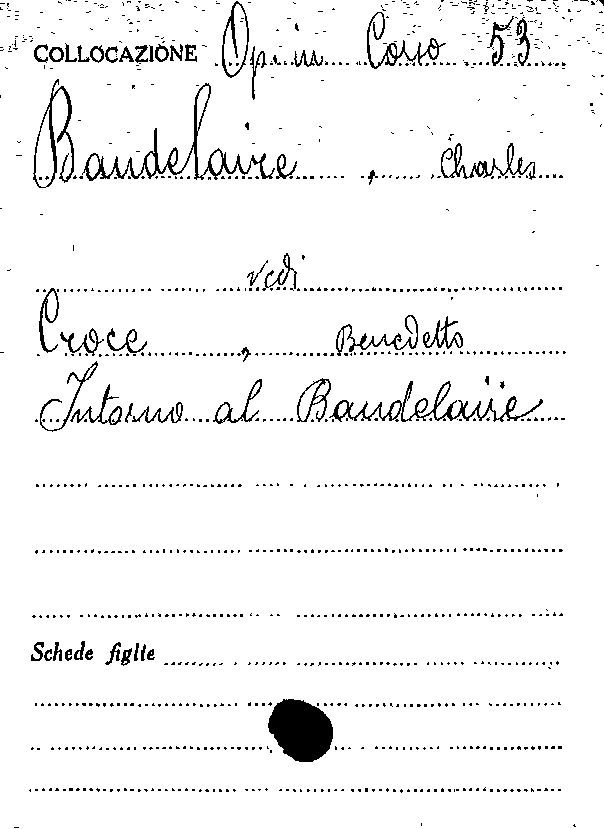 COLLOCAZIONE Op. in Corso 53
Baudelaire, Charles
vedi
Croce, Benedetto
Intorno al Baudelaire
Schede figlie